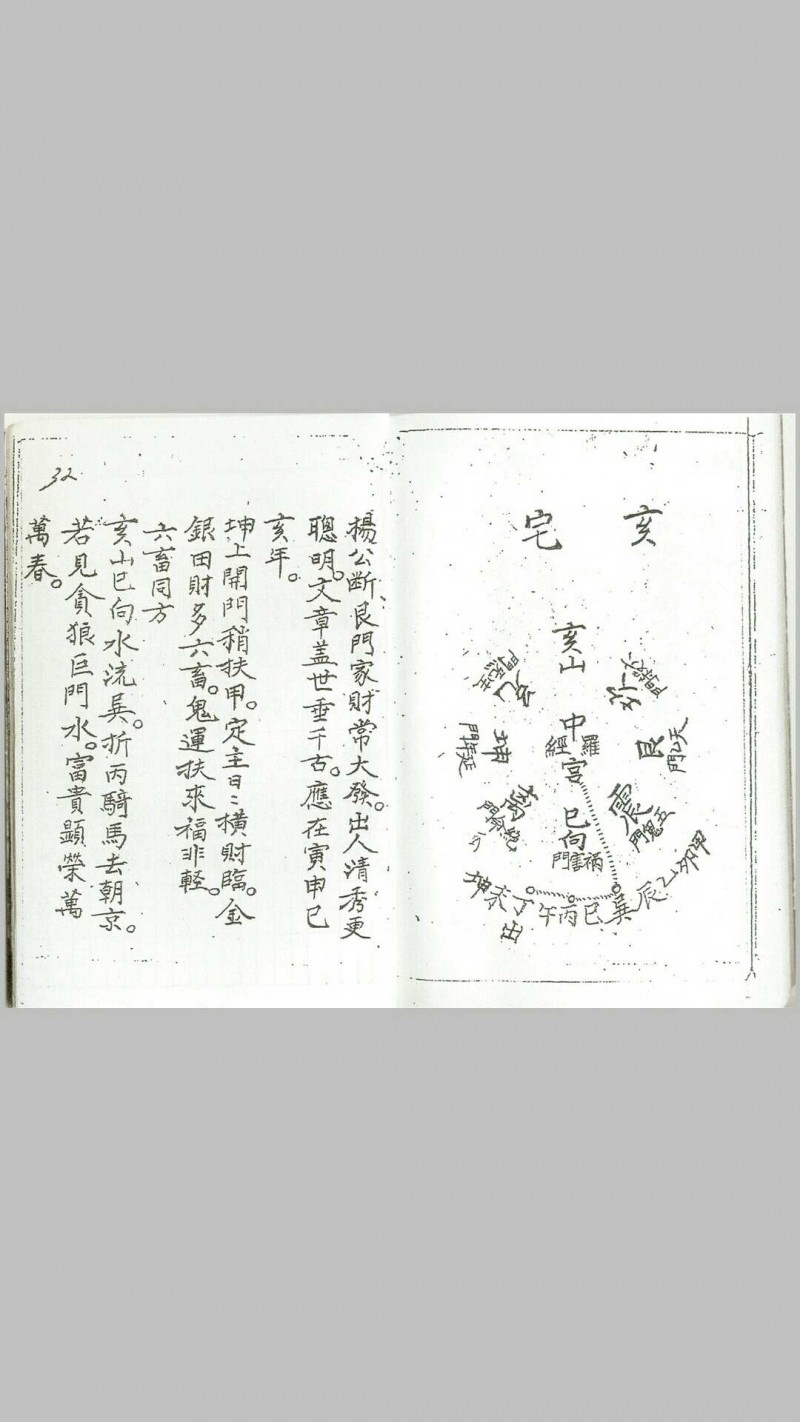 亥宅
亥山
中宮
羅經
巳向
艮
天乙門
震
五鬼門
坤
延年門
甲
乙
辰
巽
巳
丙
午
丁
坤
出
32
楊公斷、艮門家財常大發。出人清秀更
聰明。文章盖世垂千古。應在寅申巳
亥年。
坤上開門稍扶甲。定主日〻橫財臨。金
銀田財多六畜。鬼運扶來福非輕。
六畜同方
亥山巳向水流吳。折丙騎馬去朝京。
若見貪狼巨門水。富貴顯榮萬
萬春。